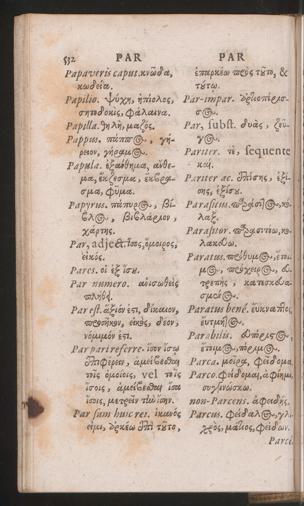 532 PAR PAR
Papaveris caput. κώδα,
κωδεία.
Papilio. ψύχη, ἠπίολος,
Papilla. θηλή, μαζός.
Pappus. πάππος, γή-
Papula. ἐξάνθημα,
σμα, φῦμα.
Papyrus. πάπυρος, βί-
βλος, βιβλάριον,
χάρτης.
Par, adject. ἴσος, ὅμοιος,
εἰκός.
Pares. οἱ ἐξ ἴσου.
Par numero.
πληθῆ.
Par est. ἄξιόν ἐστι, δίκαιον,
προσῆκον, εἰκός, δέον,
νόμιμόν ἐστι.
Par pari referre. ἴσον ἴσῳ
ἐπιφέρειν, ἀμείβεσθαι
τοῖς ὁμοίοις, vel τοῖς
ἴσοις, ἀμείβεσθαι ἴσα
ἴσοις, μετρεῖν τὴν ἴσην.
Par sum huic rei. ἱκανός
εἰμι, ἀρκέω ἐπὶ τοῦτο,
ἐπαρκέω πρὸς τοῦτο, &
τούτῳ.
Par-impar. ἀρτιοπέρισ-
σος.
Par, subst. δυάς, ζεῦ-
γος.
Pariter. τὲ, sequente
καί.
Pariter ac. ἐπίσης, ἐξί-
σης, ἐξίσου.
Parasitus. παράσιτος, κό-
λαξ.
Parasitor. παρασιτέω, κο-
λακεύω.
Paratus. πρόθυμος, ἕτοι-
μος, πρόχειρος, εὐ-
τρεπής, κατεσκευα-
σμένος.
Paratus bene.
Parabilis. εὐπόριστος,
ἕτοιμος, πόριμος.
Parca. μοῖρα,
Parco. φείδομαι, ἀφίημι,
συγγινώσκω.
non-Parcens. ἀφειδής.
Parcus. φειδωλός, γλί-
σχρος, φείδων.
Parci-